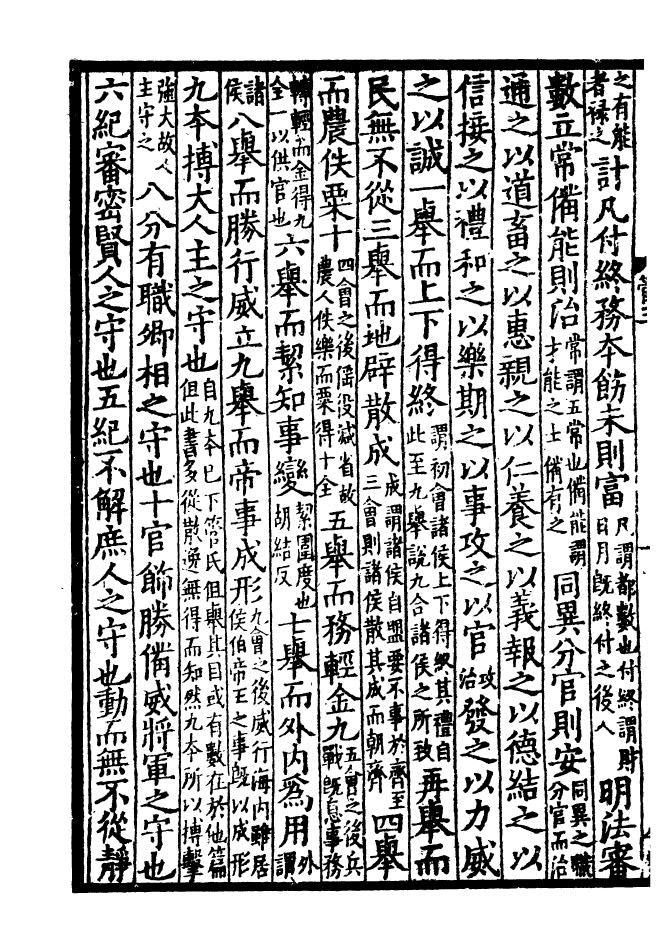 之有能者祿之計凡付終務本飭末則富凡謂都數也付終謂財日月旣終付之後人明法審
數立常備能則治常謂五常也備能謂才能之士備有之同異分官則安同異之職分官而治
通之以道畜之以惠親之以仁養之以義報之以德結之以
信接之以禮和之以樂期之以事攻之以官攻治發之以力威
之以誠一舉而上下得終謂初會諸侯上下得終其禮自此至九舉說九合諸侯之所致再舉而
民無不從三舉而地辟散成成謂諸侯自盟要不事於齊至三會則諸侯散其成而朝齊四舉
而農佚粟十四會之後傜役減省故農人佚樂而粟得十全五舉而務輕金九五會之後兵戰旣息事務
轉輕而金得九全一以供官也六舉而絜知事變絜圍度也胡結反七舉而外內爲用外謂
諸侯八舉而勝行威立九舉而帝事成形九會之後威行海內雖居侯伯帝王之事旣以成形
九本搏大人主之守也自九本已下管氏但舉其目或有數在於他篇但此書多從散逸無得而知然九本所以搏擊
強大故人主守之八分有職卿相之守也十官飾勝備威將軍之守也
六紀審密賢人之守也五紀不解庶人之守也動而無不從靜